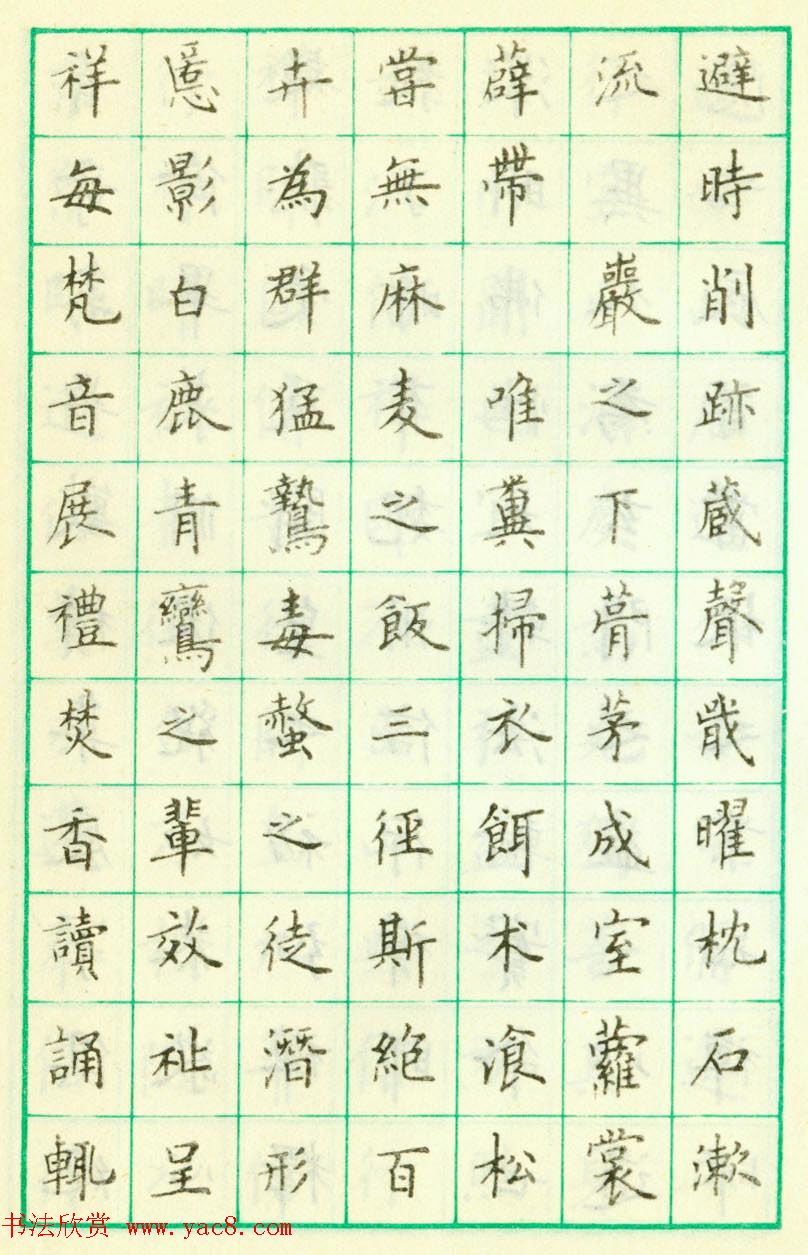 避時削跡蔵聲戢曜枕石漱
流 嚴之下葺茅成室蘿裳
薜帶 唯糞掃衣餌术湌松
嘗無麻麦之飯三徑斯絶百
卉為群猛鷙毒螫之徒潛形
慝影白鹿青鸞之輩效祉呈
祥每梵音展禮焚香讀誦輒
书法欣赏 www.yac8.com